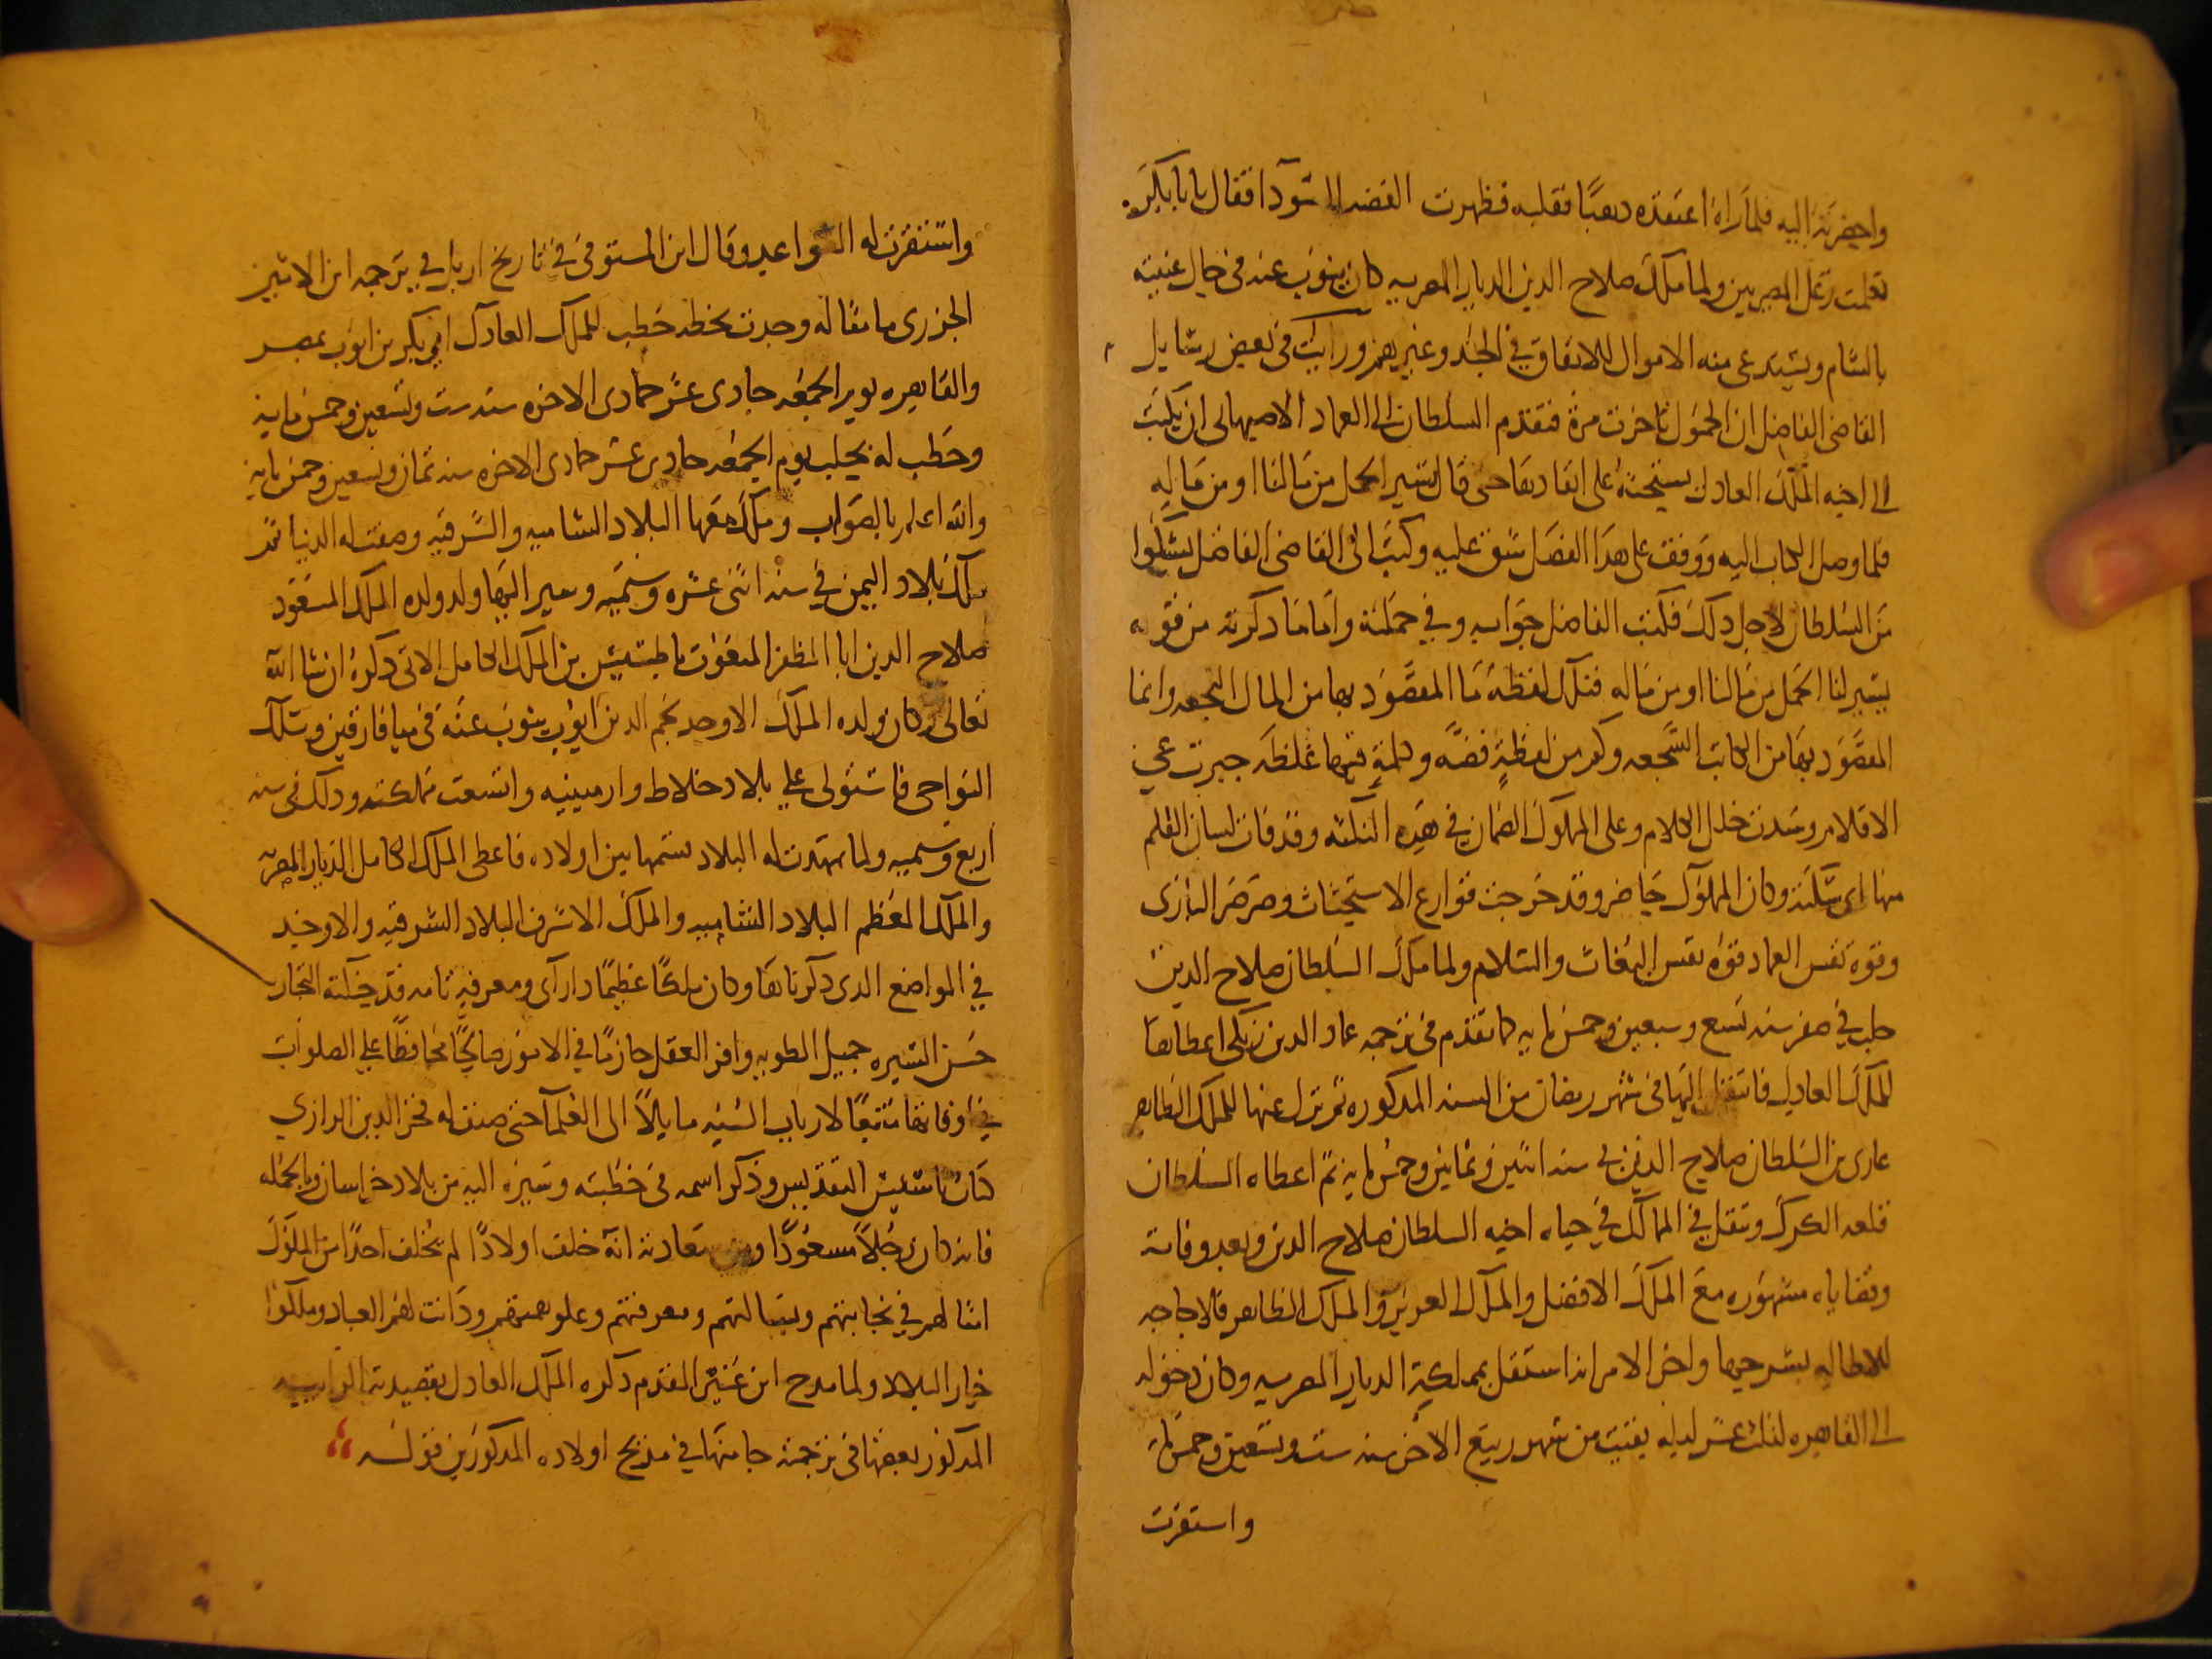 واحضرته اليه فلما راه اعتقده دهبًا فقلبه فظهرت الفضه السودا فقال يا با بكر
تعلمت زغل المصريين ولما ملك صلاح الدين الديار المصريه كان ينوب عنه في حال غيبته
بالشام ويستدعي منه الاموال للانفاق في الجند وغيرهم ورايت في بعض رسايل
القاضي الفاضل ان الحمول تاخرت مرة فتقدم السلطان الى العماد الاصبهاني ان يكتب
الى اخيه الملك العادل يستحثه على انفادها حتى قال يسير الحمل من مالنا او من ماله
فلما وصل الكتاب اليه ووقف على هذا الفصل شق عليه وكتب الى القاضي الفاضل يشكوا
من السلطان لاجل دلك فكتب الفاضل جوابه وفي جملته واما ما دكرته من قوله
يسير لنا الحمل من مالنا او من ماله فتلك لفظة ما المقصود بها من المال النجعه وانما
المقصود بها من الكاتب السجعه وكم من لفظة فضه وكلمة فيها غلظه جبرت عي
الاقلام وسدت خلل الكلام وعلى المملوك الضمان في هذه النكته وقد فات لسان القلم
منها اي سكته وكان المملوك حاضر وقد خرجت قوارع الاستحثاث وصرصر البازي
وقوة نفس العماد قوة نفس البغاث والسلام ولما ملك السلطان صلاح الدين
حلب في صفر سنه تسع وسبعين وخمس مايه كما تقدم في ترجمه عماد الدين زنكي اعطاها
للملك العادل فانتقل اليها في شهر رمضان من السنه المدكوره ثم نزل عنها للملك الظاهر
غازي بن السلطان صلاح الدين في سنه اثنين وثمانين وخمس مايه ثم اعطاه السلطان
قلعه الكرك وتنقل في الممالك في حياه اخيه السلطان صلاح الدين وبعد وفاته
وقضاياه مشهوره مع الملك الافضل والملك العزيز والملك الظاهر فلا حاجه
للاطاله بشرحها واخر الامر انه استقل بمملكة الديار المصريه وكان دخوله
الى القاهره لثلث عشر ليله بقيت من شهر ربيع الاخر سنه ست وتسعين وخمس مايه
واستقرت
واستقرت له القواعد وقال ابن المستوفي في تاريخ اربل في ترجمه ابن الاثير
الجزري ما مثاله وجدت بخطه خطب للملك العادل ابي بكر بن ايوب بمصر
والقاهره يوم الجمعه حادى عشر جمادى الاخره سنه ست وتسعين وخمس مايه
وخطب له بحلب يوم الجمعه حادى عشر جمادى الاخره سنه ثمان وتسعين وخمس مايه
والله اعلم بالصواب وملك معها البلاد الشاميه والشرقيه وصفت له الدنيا ثم
ملك بلاد اليمن في سنه اثنى عشره وستميه وسير اليها ولد ولده الملك المسعود
صلاح الدين ابا المظفر المنعوت باطسيس بن الملك الكامل الاتي دكره ان شا الله
تعالى وكان ولده الملك الاوحد نجم الدين ايوب ينوب عنه في ميا فارقين وتلك
النواحي فاستولى على بلاد خلاط وارمينيه واتسعت مملكته ودلك في سنه
اربع وستميه ولما تمهدت له البلاد قسمها بين اولاده فاعطى الملك الكامل الديار المصريه
والملك المعظم البلاد الشاميه والملك الاشرف البلاد الشرقيه والاوحد
في المواضع الدي دكرناها وكان ملكًا عظيمًا دا رآى ومعرفة تامه قد حنكته التجارب
حسن السيره جميل الطويه وافر العقل حازمًا في الامور صالحًا محافظًا على الصلوات
في اوقاتها متبعًا لارباب السنه مايلًا الى العلما حتى صنف له فخر الدين الرازي
كتاب تاسيس التقديس وذكر اسمه في خطبته وسيره اليه من بلاد خراسان وبالجمله
فانه كان رجلًا مسعودًا ومن سعادته انه خلف اولادًا لم يخلف احدًا من الملوك
امثالهم في نجابتهم وبسالتهم ومعرفتهم وعلو همتهم ودانت لهم العباد وملكوا
خيار البلاد ولما مدح ابن عنين المقدم دكره الملك العادل بقصيدته الراييه
المدكور بعضها في ترجمته جا منها في مديح اولاده المدكورين قوله